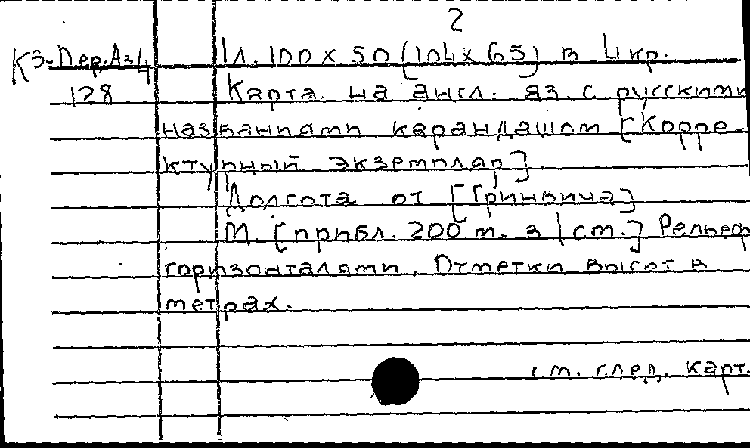 2
К3-Пер.Аз/4 1л. 100 x 50 (104 x 65) в 4 кр.
128 Карта на англ. яз. с русскими
названиями карандашом [Корре-
ктурный экземпляр].
Долгота от [Гринвича]
М. [прибл. 200 м. в 1 см.] Рельеф
горизонталями. Отметки высот в
метрах.
см. след. карт.